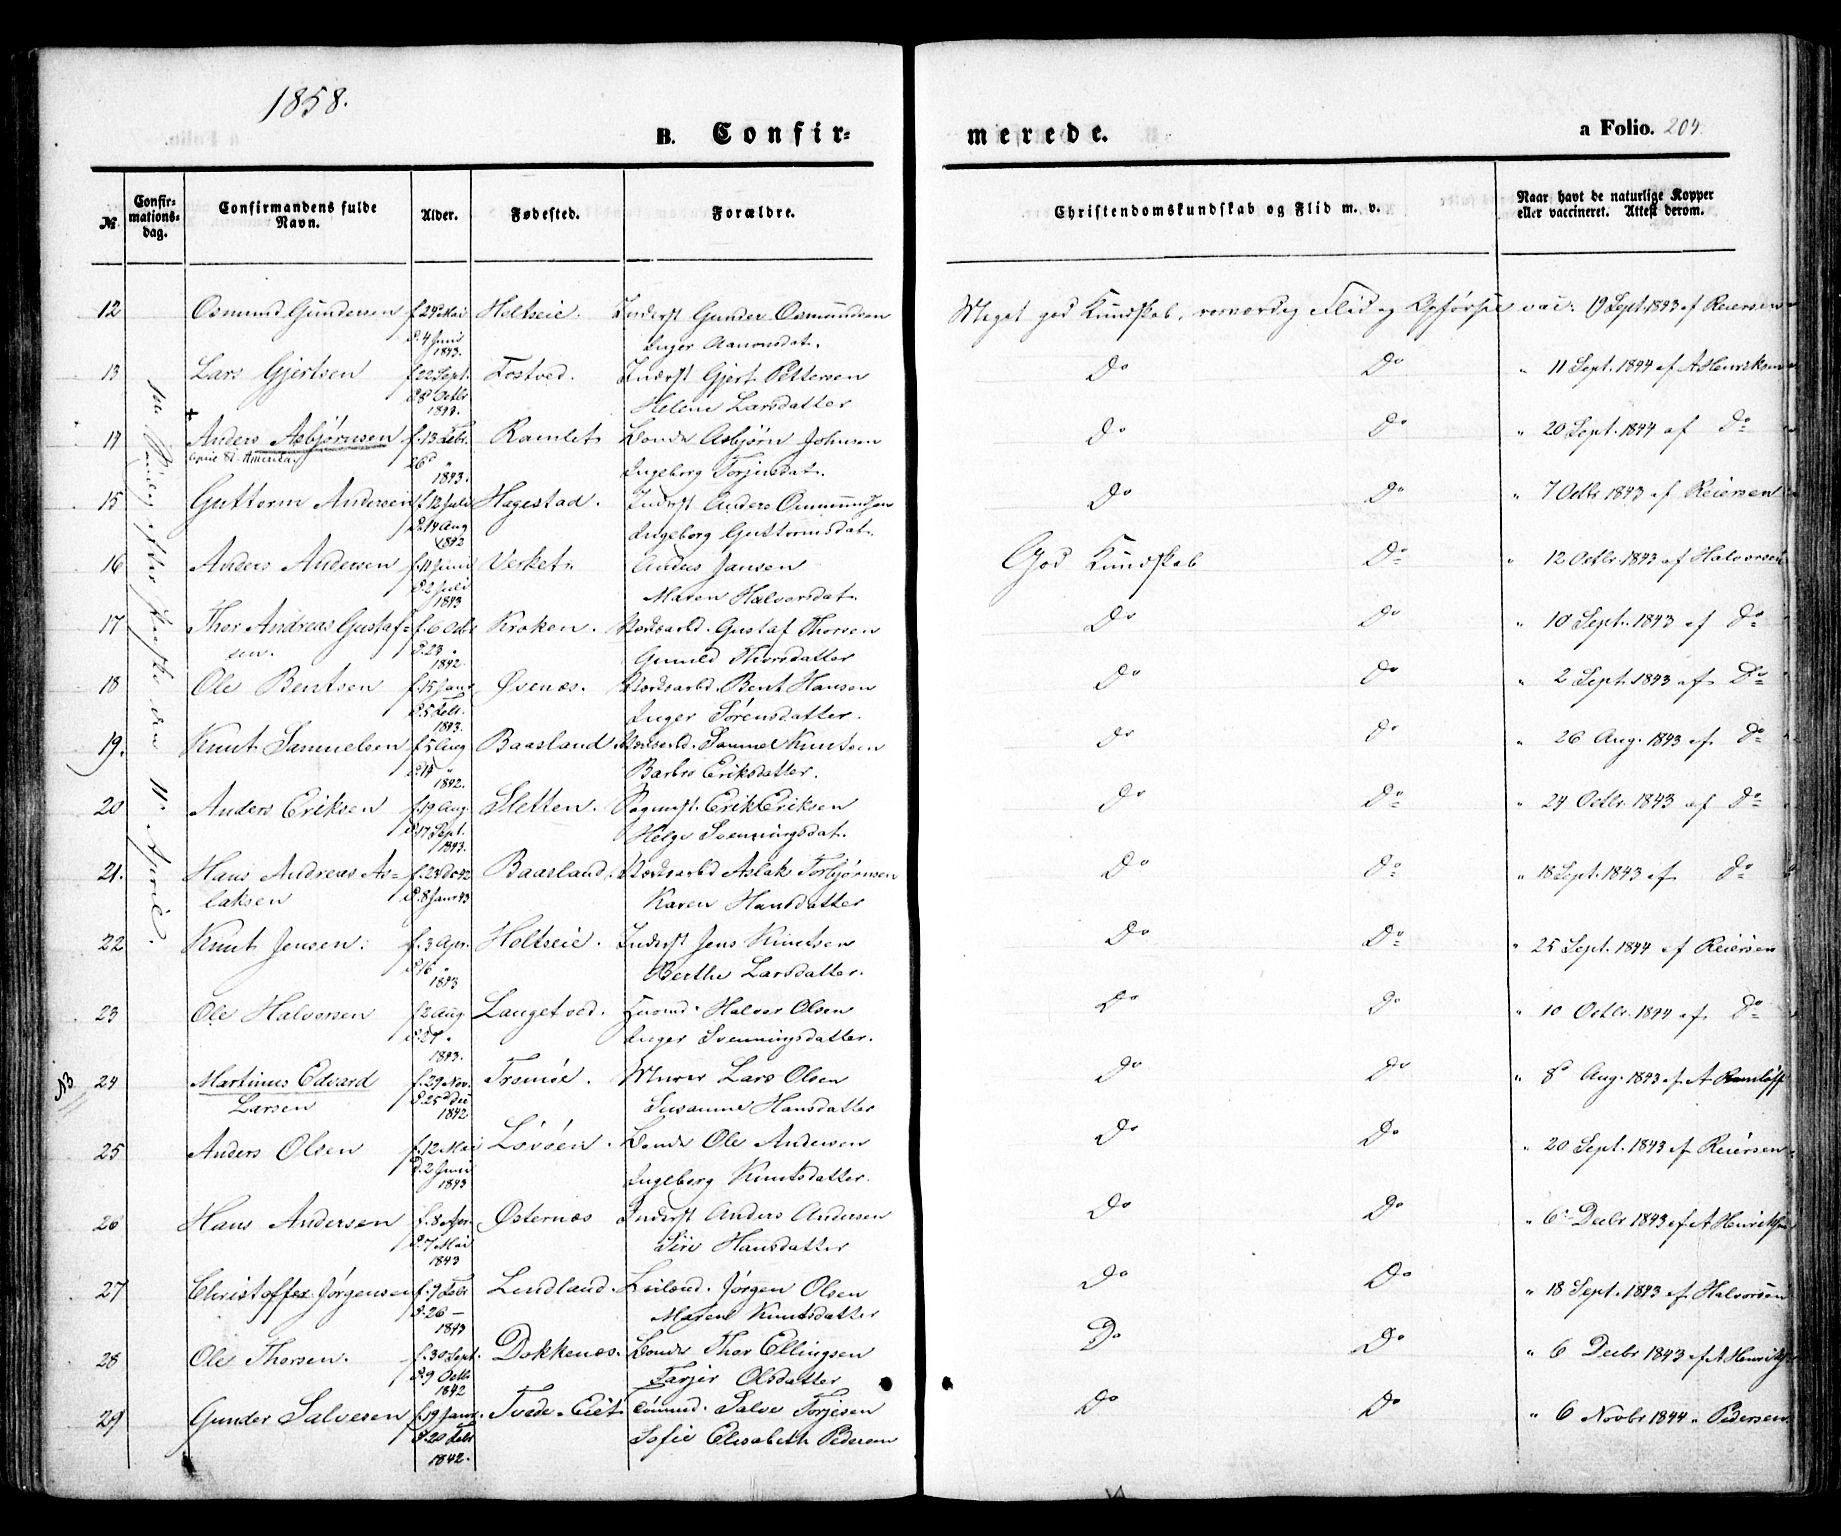 1858.
B. Confir-
merede.
a Folio. 204.
№
Confir-
mations-
dag.
Confirmandens fulde
Navn.
Alder.
Fødested.
Forældre.
Christendomskundskab og Flid m. v.
Naar havt de naturlige Kopper
eller vaccineret. Attest derom.
1ste Søndag efter Paaske den 11. April.
12 Osmund Gundersen f. 24 Mai Holtseie. Inderst Gunder Osmundsen Meget god Kundskab, rosværdig Flid og Opførsel vac. 19 Sept. 1843 af Reiersen
d. 4 Juni
1843.
Inger Aanonsdat.
13 Lars Gjertsen f 22 Sept. Fostved. Inderst Gjert Pettersen Do Do " 11 Sept. 1844 af A Henriksen
d 8 Octbr
Helene Larsdatter
14 Anders Asbjørnsen f. 13 Febr. Ramlet Bonde Asbjørn Johnsen Do Do " 20 Sept. 1844 af Do
Amerika
26 "
1843.
Ingeborg Torjusdat.
15 Guttorm Andersen f. 12 Juli Hagestad. Inderst Anders Osmundsen Do Do " 7 Octbr 1843 af Reiersen
d. 14 Aug
1842
Ingeborg Guttormsdat.
16 Anders Andersen f. 11 Juni Verket. Anders Jansen God Kundskab Do " 12 Octbr 1843 af Halvorsen
d. 2 Juli
1843
Maren Halvorsdat.
17 Thor Andreas Gustaf- f. 6 Octbr Kroken. Gustaf Thorsen Do Do " 10 Sept. 1843 af Do
sen.
d. 23 "
1842.
Gunild Thorsdatter
18 Ole Bentsen f. 15 Janr Øvenæs. Bent Hansen Do Do " 2 Sept. 1843 af Do
d. 5 Febr.
1843.
Inger Sørensdatter.
19. Knut Samuelsen f 5 Aug Baasland. Samuel Knutsen Do Do " 26 Aug. 1843 af Do
d. 14 "
1842.
Barbro Eriksdatter.
20 Anders Eriksen f. 19 Aug. Sletten. Erik Eriksen Do Do " 24 Octbr. 1843 af Do
d. 17 Sept.
1843.
Helge Svenningsdat.
21. Hans Andreas As- Baasland. Aslak Torbjørnsen Do Do " 18 Sept. 1843 af Do
laksen
d. 8 Janr 43
Karen Hansdatter
22 Knut Jensen. f. 3 Apr. Holtseie. Inderst Jens Knutsen Do Do " 25 Sept. 1844 af Reiersen
d. 16 "
1843
Berthe Larsdatter.
23 Ole Halvorsen f 2 Aug. Langetved. Halvor Olsen Do Do " 10 Octbr. 1844 af Do
d. 27 "
1843.
Inger Svenningsdatter.
NB 24 Martinus Edvard f. 29 Nov. Tromøe. Murer Lars Olsen Do Do " 8 Aug. 1843 af A
Larsen
d. 25 Dec
1842
Susanne Hansdatter
25 Anders Olsen f. 12 Mai Løvøen. Bonde Ole Andersen Do Do " 20 Sept. 1843 af Reiersen
d. 2 Juni
1843
Ingeborg Knutsdatter.
26 Hans Andersen f. 8 Apr. Østernæs Inderst Anders Andersen Do Do " 6 Decbr 1843 af A Henriksen
d. 7 Mai
1843
Siri Hansdatter
27 Christoffer Jørgensen f. 9 Febr Lindland. Leilænd. Jørgen Olsen Do Do " 18 Sept. 1843 af Halvorsen
d. 26 —
1843
Maren Knutsdatter
28 Ole Thorsen. f. 30 Sept. Dokkenæs. Bonde Thor Ellingsen Do Do " 6 Decbr 1843 af A Henriksen
d. 9 Octbr
1842
Tarjer Olsdatter
29 Gunder Salvesen f. 19 Janr. Tvede-Eiet Tømmd. Salve Torjesen Do Do " 6 Novbr 1844 " Pedersen
d. 20 Febr
1842.
Sofie Elisabeth Pedersen